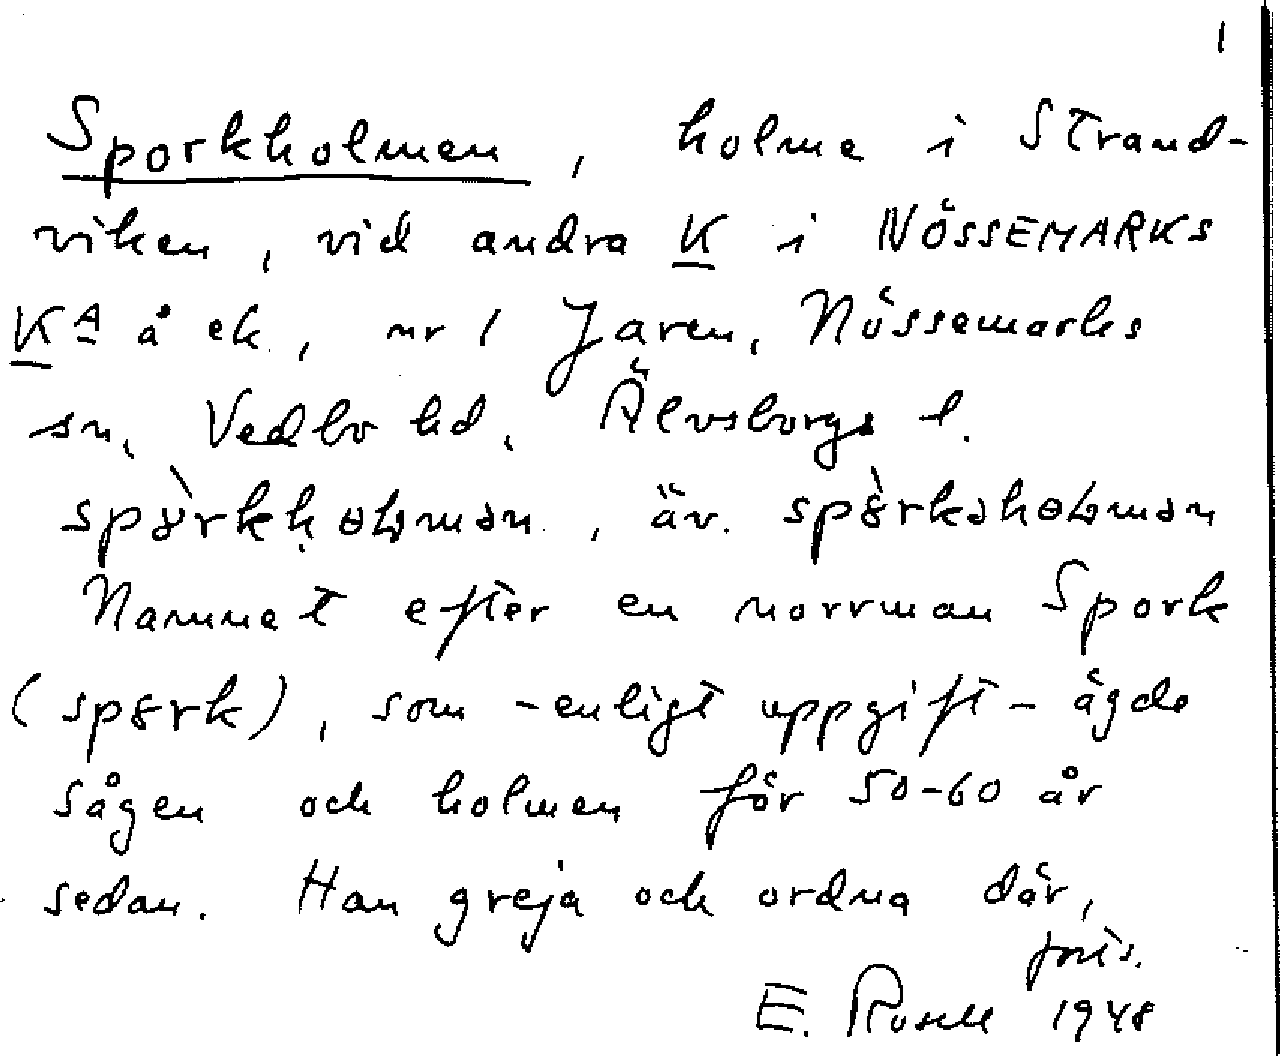 1
Sporkholmen, holme i Strand-
viken, vid andra K i NÖSSEMARKS
KA å ek, nr 1 Jaren, Nössemarks
sn, Vedbo hd, Älvsborgs l.
, äv.
Namnet efter en norrman Spork
(), som - enligt uppgift - ägde
sågen och holmen för 50-60 år
sedan. Han greja och ordna där,
forts.
E. Rosell 1948